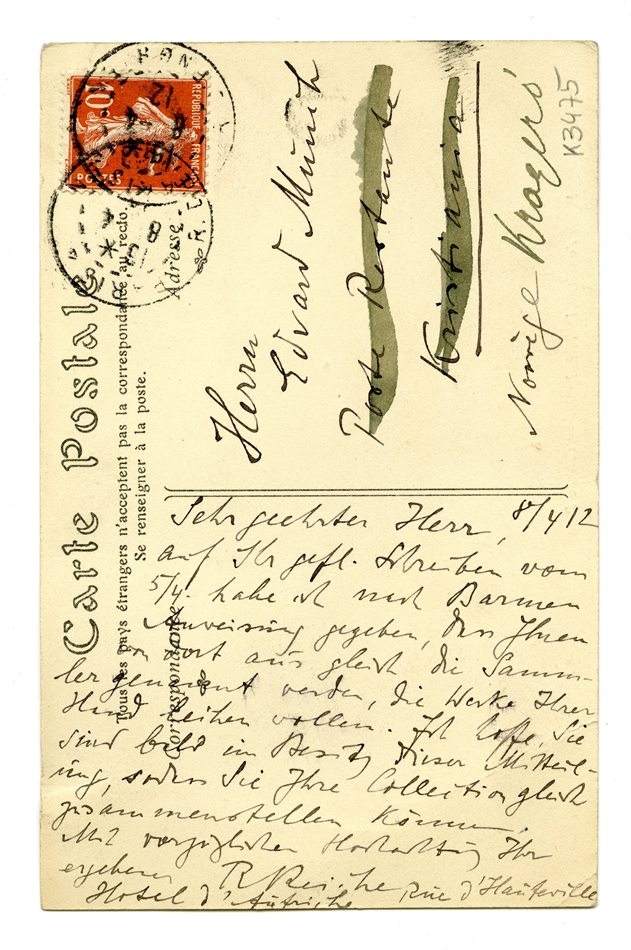 Carte Postale
Tous les pays étrangers n'acceptent pas la correspondance au recto.
Se renseigner à la poste.
Correspondance
Adresse
10
REPUBLIQUE FRANÇAISE
POSTES
K3475
Herrn
Edvard Münch
Poste Restante
Kristiania
Norwige Kragerö
Sehr geehrter Herr, 8/4 12
auf Ihr gefl. Schreiben vom
5/4. habe ich nach Barmen
Anweisung gegeben, dass Ihnen
von dort aus gleich die Samm-
ler genannt werden, die Werke Ihrer
Hand leihen wollen. Ich hoffe, Sie
sind bald im Besitz dieser Mitteil-
ung, sodass Sie Ihre Collection gleich
zusammenstellen können.
Mit vorzüglicher Hochachtung Ihr
ergebener R Reiche
Hotel d'Autriche Rue d'Hauteville